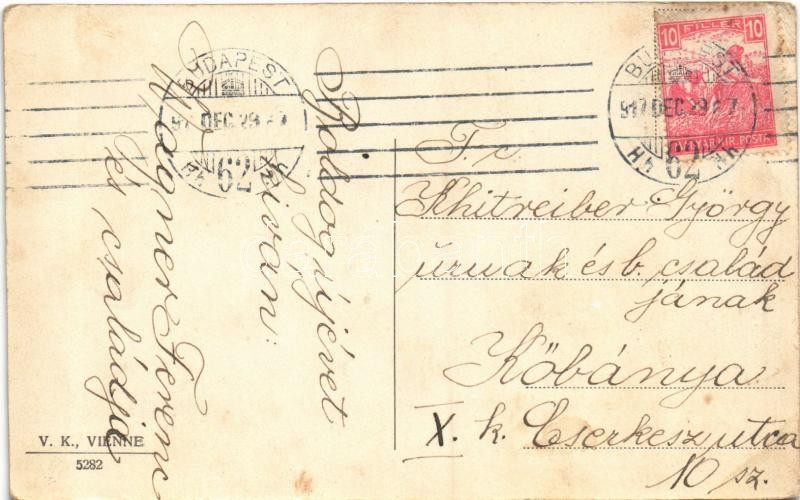 Boldog újévet
kíván:
Wagner Ferenc
és családja
T. c.
Khitreiber György
úrnak és b. család
jának
Kőbánya
X. k. Cserkesz utca
10 sz.
V. K., VIENNE
5282
BUDAPEST
917 DEC 29
62
10 FILLER 10
MAGYAR KIR. POSTA
BUDAPEST
917 DEC 29
62